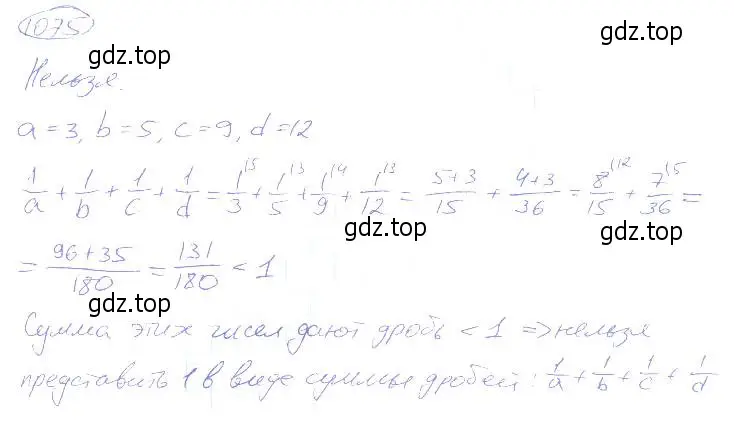 1075
gdz.top
gdz.top
Нельзя.
a = 3, b = 5, c = 9, d = 12
1/a + 1/b + 1/c + 1/d = 1/3^{15} + 1/5^{13} + 1/9^{14} + 1/12^{13} = (5+3)/15 + (4+3)/36 = 8/15^{112} + 7/36^{15} =
gdz.top
gdz.top
= (96+35)/180 = 131/180 < 1
gdz.top
Сумма этих чисел дают дробь < 1 => нельзя
gdz.top
представить 1 в виде суммы дробей: 1/a + 1/b + 1/c + 1/d